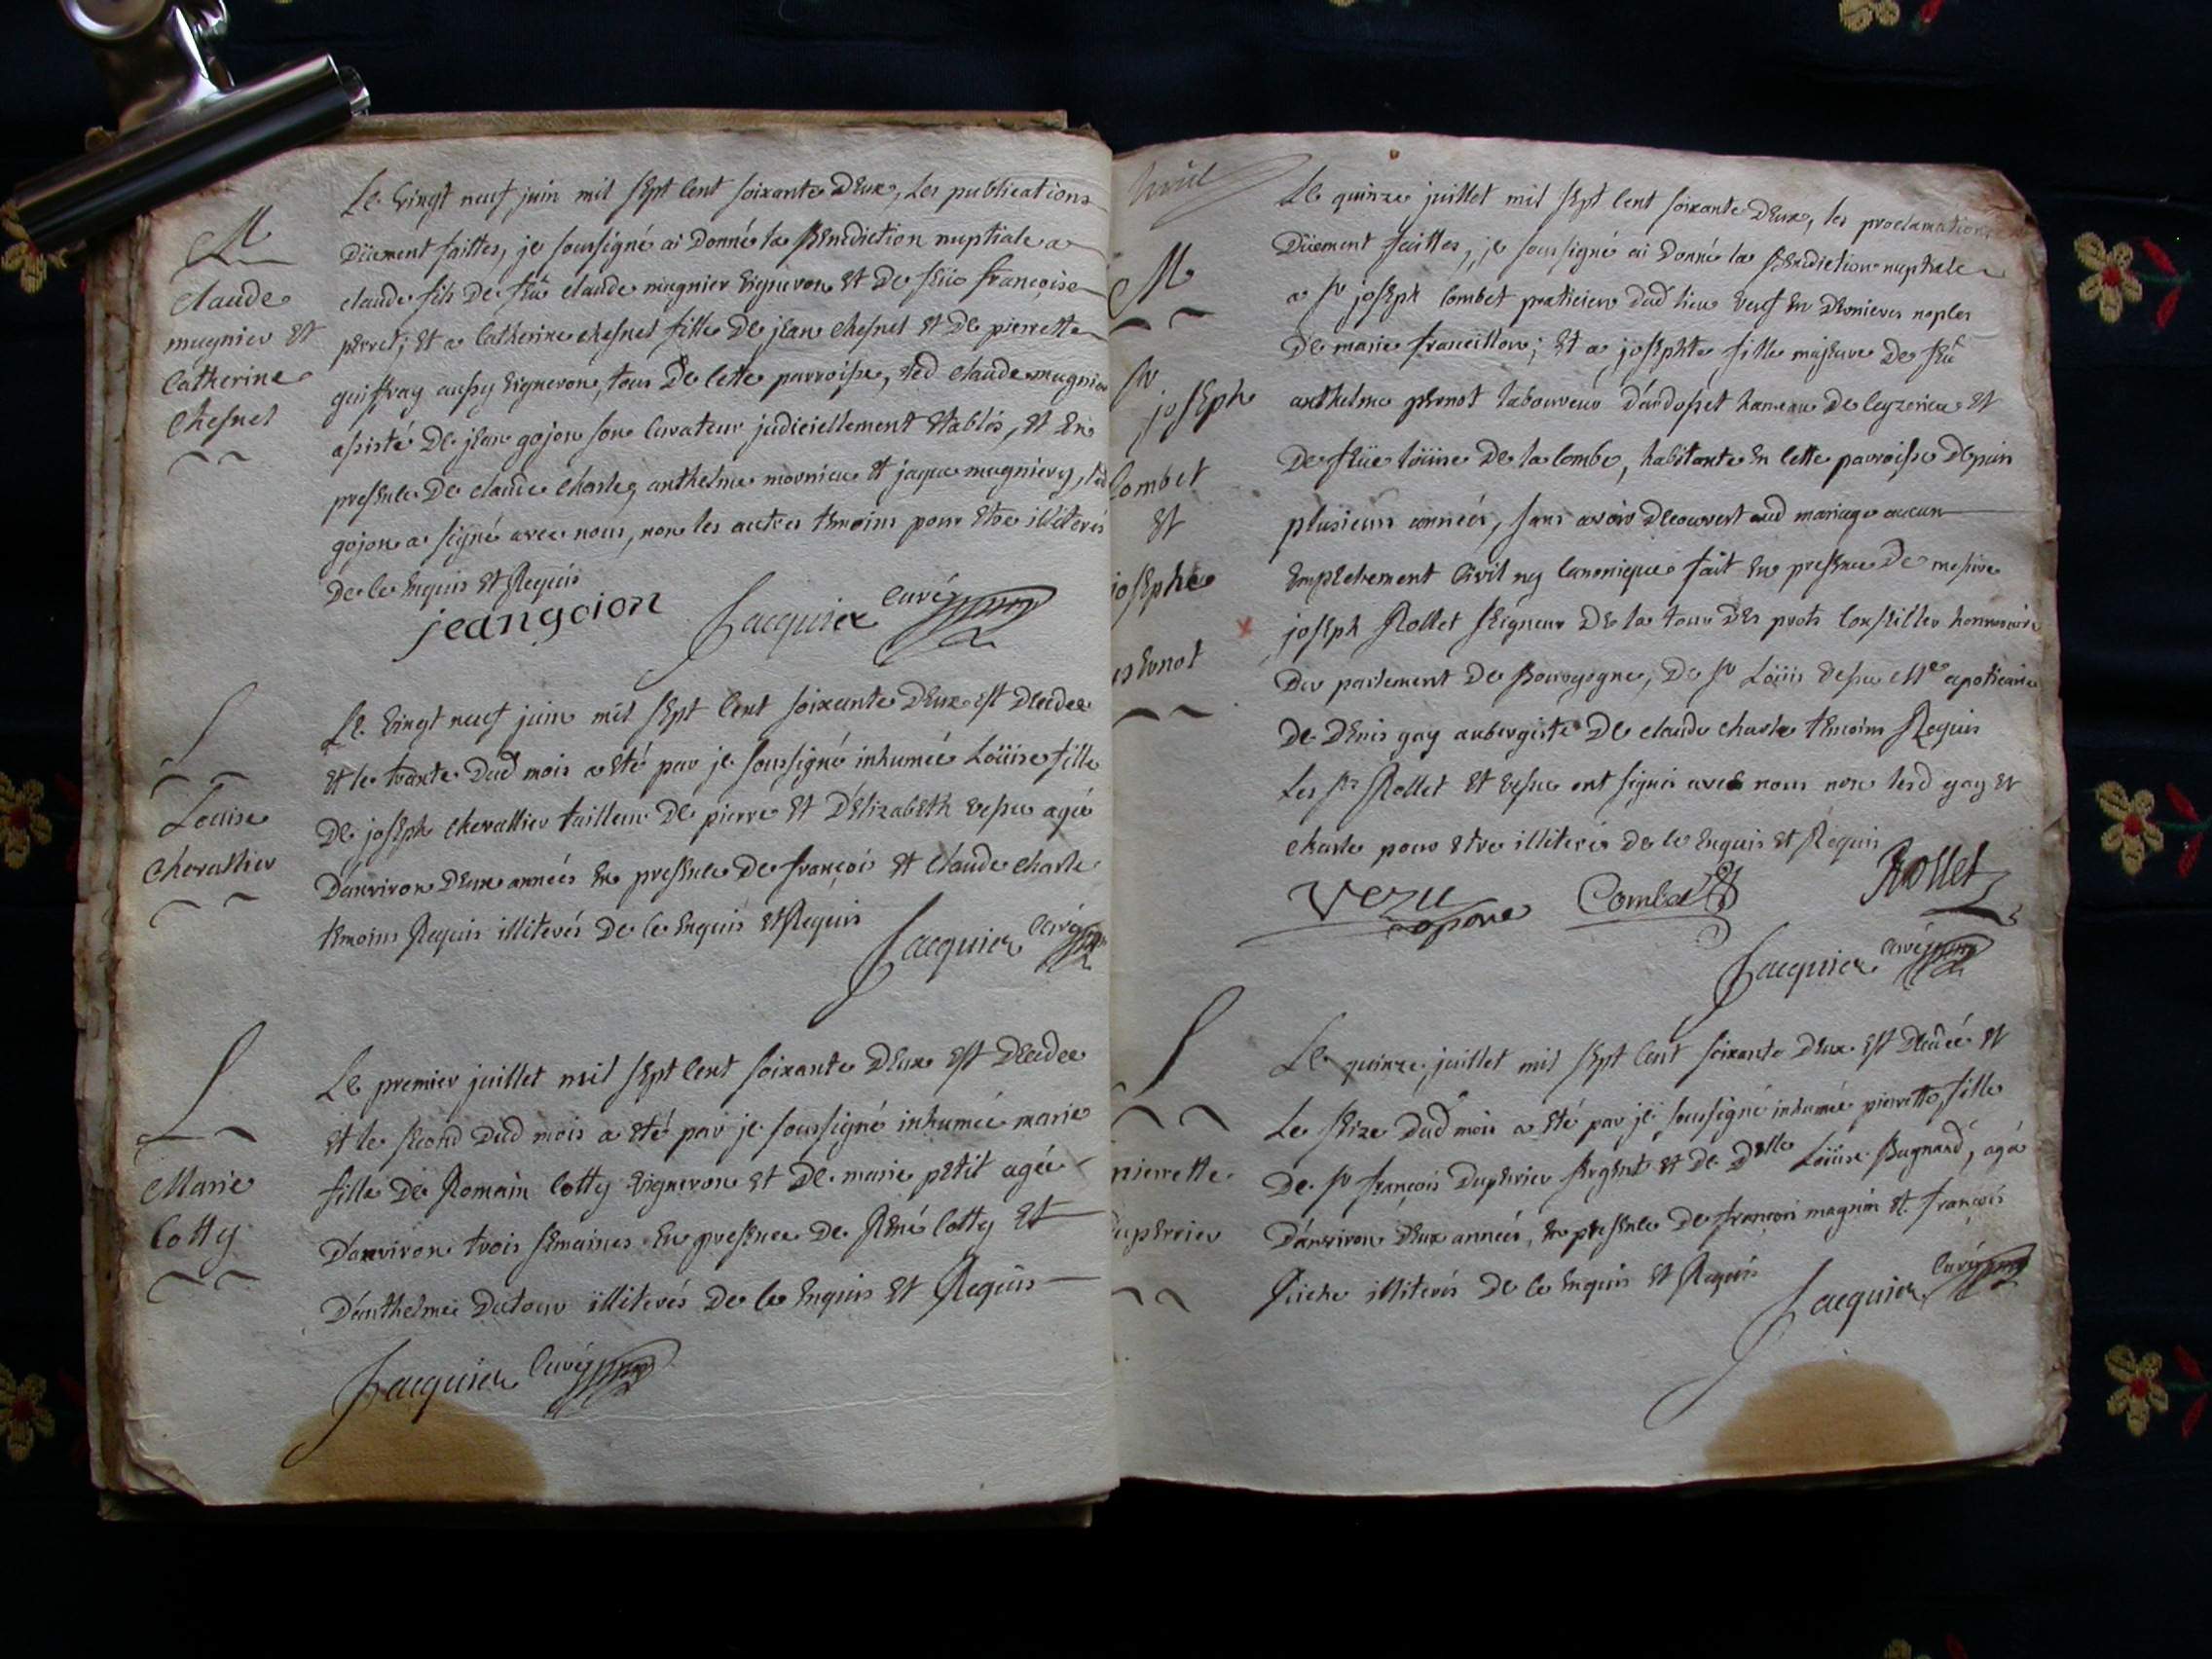 M
claude
mugnier Et
Catherine
Chesnel
Le vingt neuf juin mil sept cent soixante deux, Les publications
düement faittes, je soussigné ai donné la Benediction nuptiale a
claude fils de feu claude mugnier vigneron Et de feüe françoise
perret; Et a Catherine chesnel fille de jean chesnel Et de pierrette
guiffray aussy vigneron, tous de cette parroisse, led claude mugnier
assisté de jean gojon son curateur judiciellement Etablis, Et En
presence de claude charle, anthelme mornieu Et jaque mugniery, led
gojon a signé avec nous, non les autres temoins pour Etre illiterés
de ce Enquis Et Requis
jeangoion
Jacquier curé
L
Louise
Chevallier
Le vingt neuf juin mil sept cent soixante deux est decedee
Et le trante dud mois a Eté par je soussigné inhumée Loüise fille
de joseph chevallier tailleur de pierre Et d'Elizabeth vesu agée
d'anviron deux années En presence de françois Et claude charle
temoins Requis illiterés de ce Enquis Et Requis
Jacquier curé
L
Marie
Cotty
Le premier juillet mil sept cent soixante deux est decedee
Et le second dud mois a Eté par je soussigné inhumée marie
fille de Romain Cotty vigneron Et de marie petit agée
d'anviron trois semaines En presence de René Cotty Et
d'anthelme dutour illiterés de ce Enquis Et Requis
Jacquier curé
M
Sr
joseph
Combet
Et
josephe
pernot
Le quinze juillet mil sept cent soixante deux, les proclamations
düement faittes, je soussigné ai donné la Benediction nuptiale
a Sr joseph Combet praticien dud lieu veuf En dernieres noples
de marie francillon; Et a josephte fille majeure de feu
anthelme pernot laboureur d'ardosset hameau de ceyzerieu Et
de feüe loüise de la combe, habitante En cette parroisse depuis
plusieurs années, sans avoir decouvert aud mariage aucun
Empechement civil ny canonique fait En presence de messire
joseph Rollet seigneur de la tour des prots conseiller honnoraire
du parlement de Bourgogne, de Sr Loüis vesu Me apoticaire
de denis gay aubergiste de claude charle temoins Requis
Les Srs Rollet Et vesu ont signés avec nous non lesd gay Et
charle pour Etre illiterés de ce Enquis Et Requis
Vezu
apore
Combet
Rollet
Jacquier curé
L
pierrette
duperrier
Le quinze juillet mil sept cent soixante deux est decedée Et
Le seize dud mois a Eté par je soussigné inhumée pierrette, fille
de Sr françois duperrier sergent Et de Delle Loüise Bugnard, agée
d'anviron deux années, En presence de françois magnin Et françois
Riche illiterés de ce Enquis Et Requis
Jacquier curé